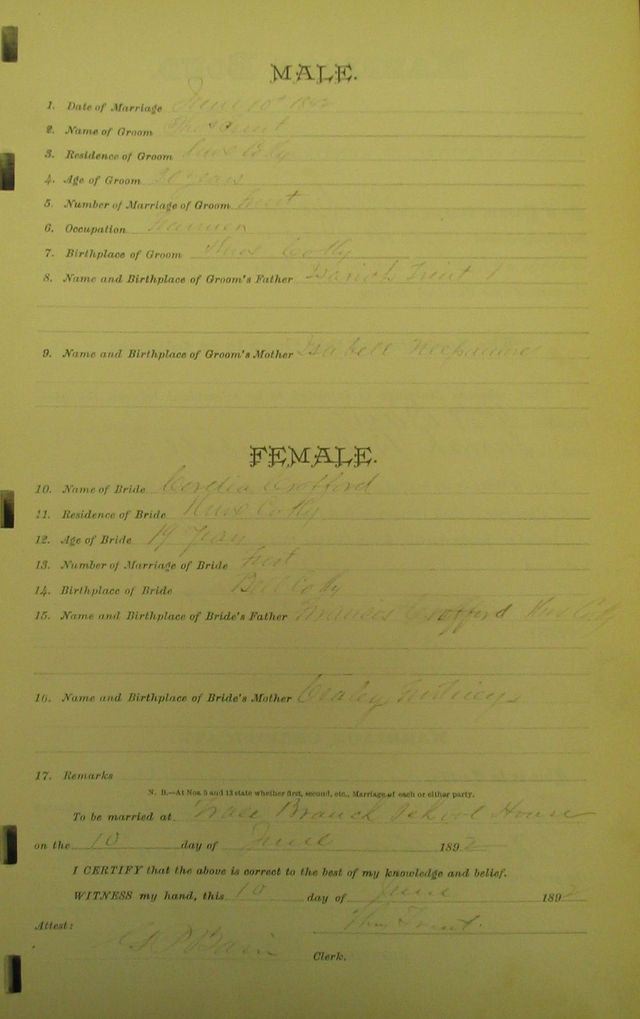 MALE.
1. Date of Marriage June 10th 1892
2. Name of Groom Thos Trent
3. Residence of Groom Knox Co Ky
4. Age of Groom 20 years
5. Number of Marriage of Groom First
6. Occupation Farmer
7. Birthplace of Groom Knox Co Ky
8. Name and Birthplace of Groom's Father Trent
9. Name and Birthplace of Groom's Mother Isabell
FEMALE.
10. Name of Bride Cordelia Crofford
11. Residence of Bride Knox Co Ky
12. Age of Bride 19 Years
13. Number of Marriage of Bride First
14. Birthplace of Bride Bell Co Ky
15. Name and Birthplace of Bride's Father Francis Crofford Knox Co Ky
16. Name and Birthplace of Bride's Mother
17. Remarks
N. B.—At Nos. 5 and 13 state whether first, second, etc., Marriage of each or either party.
To be married at Trace Branch School House
on the 10 day of June 1892
I CERTIFY that the above is correct to the best of my knowledge and belief.
WITNESS my hand, this 10 day of June 1892
Thos Trent.
Attest:
Bain Clerk.